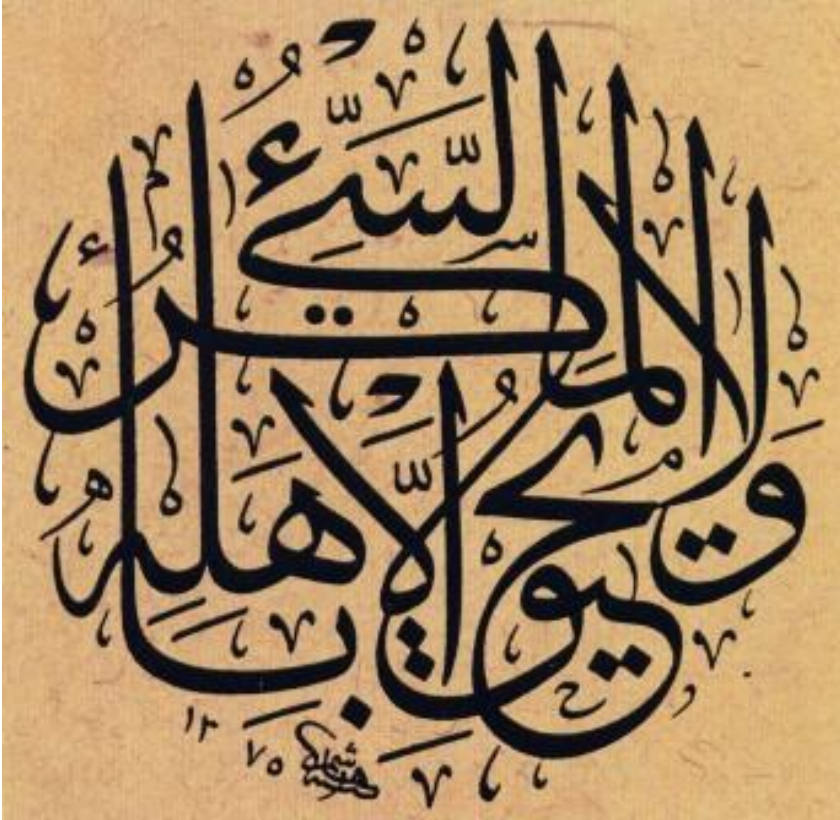 ولا يحيق المكر السيئ إلا بأهله
١٣٧٥